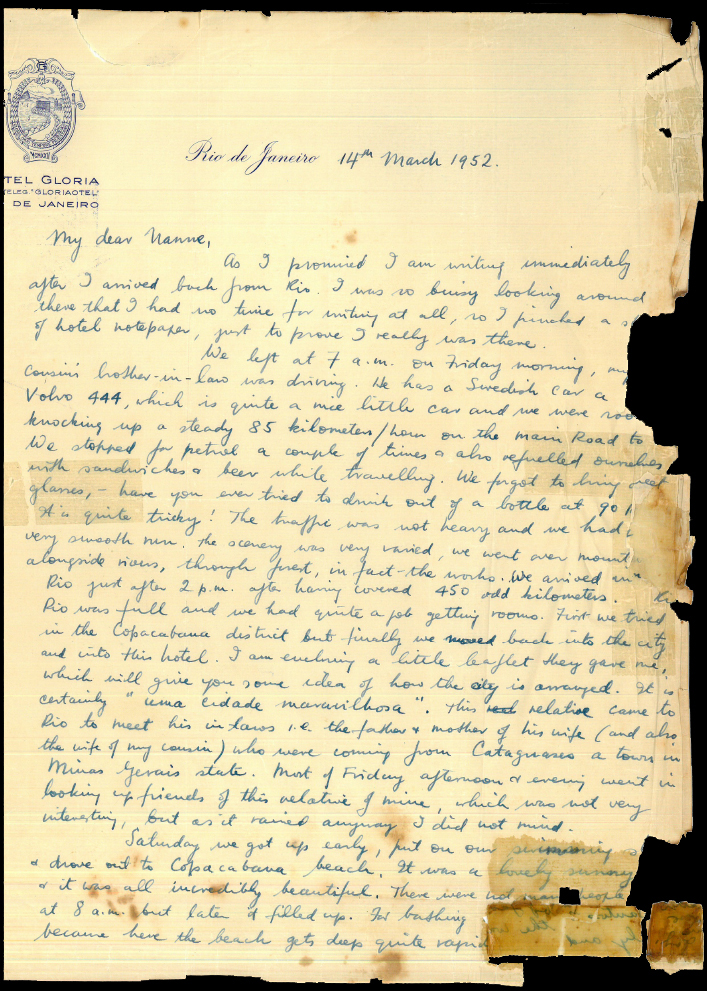 G
MCMXXII
TEL GLORIA
TELEG. "GLORIAOTEL"
DE JANEIRO
Rio de Janeiro 14th March 1952.
My dear Nanne,
As I promised I am writing immediately
after I arrived back from Rio. I was so busy looking around
there that I had no time for writing at all, so I pinched a
of hotel notepaper, just to prove I really was there.
We left at 7 a.m. on Friday morning, my
cousin's brother-in-law was driving. He has a Swedish car a
Volvo 444, which is quite a nice little car and we were soon
knocking up a steady 85 kilometers/hour on the main Road to
We stopped for petrol a couple of times & also refuelled ourselves
with sandwiches & beer while travelling. We forgot to bring
glasses, - have you ever tried to drink out of a bottle at 90
It is quite tricky! The traffic was not heavy and we had
very smooth run. The scenery was very varied, we went over
alongside rivers, through forest, in fact - the works. We arrived in
Rio just after 2 p.m. after having covered 450 odd kilometers.
Rio was full and we had quite a job getting rooms. First we tried
in the Copacabana district but finally we moved back into the city
and into this hotel. I am enclosing a little leaflet they gave me,
which will give you some idea of how the city is arranged. It is
certainly "uma cidade maravilhosa". This relative came to
Rio to meet his in-laws i.e. the father & mother of his wife (and also
the wife of my cousin) who were coming from Cataguases a town in
Minas Gerais state. Most of Friday afternoon & evening went in
looking up friends of this relative of mine, which was not very
interesting, but as it rained anyway I did not mind.
Saturday we got up early, put on our swimming
& drove out to Copacabana beach. It was a lovely sunny
& it was all incredibly beautiful. There were not many people
at 8 a.m. but later it filled up. For bathing
because here the beach gets deep quite